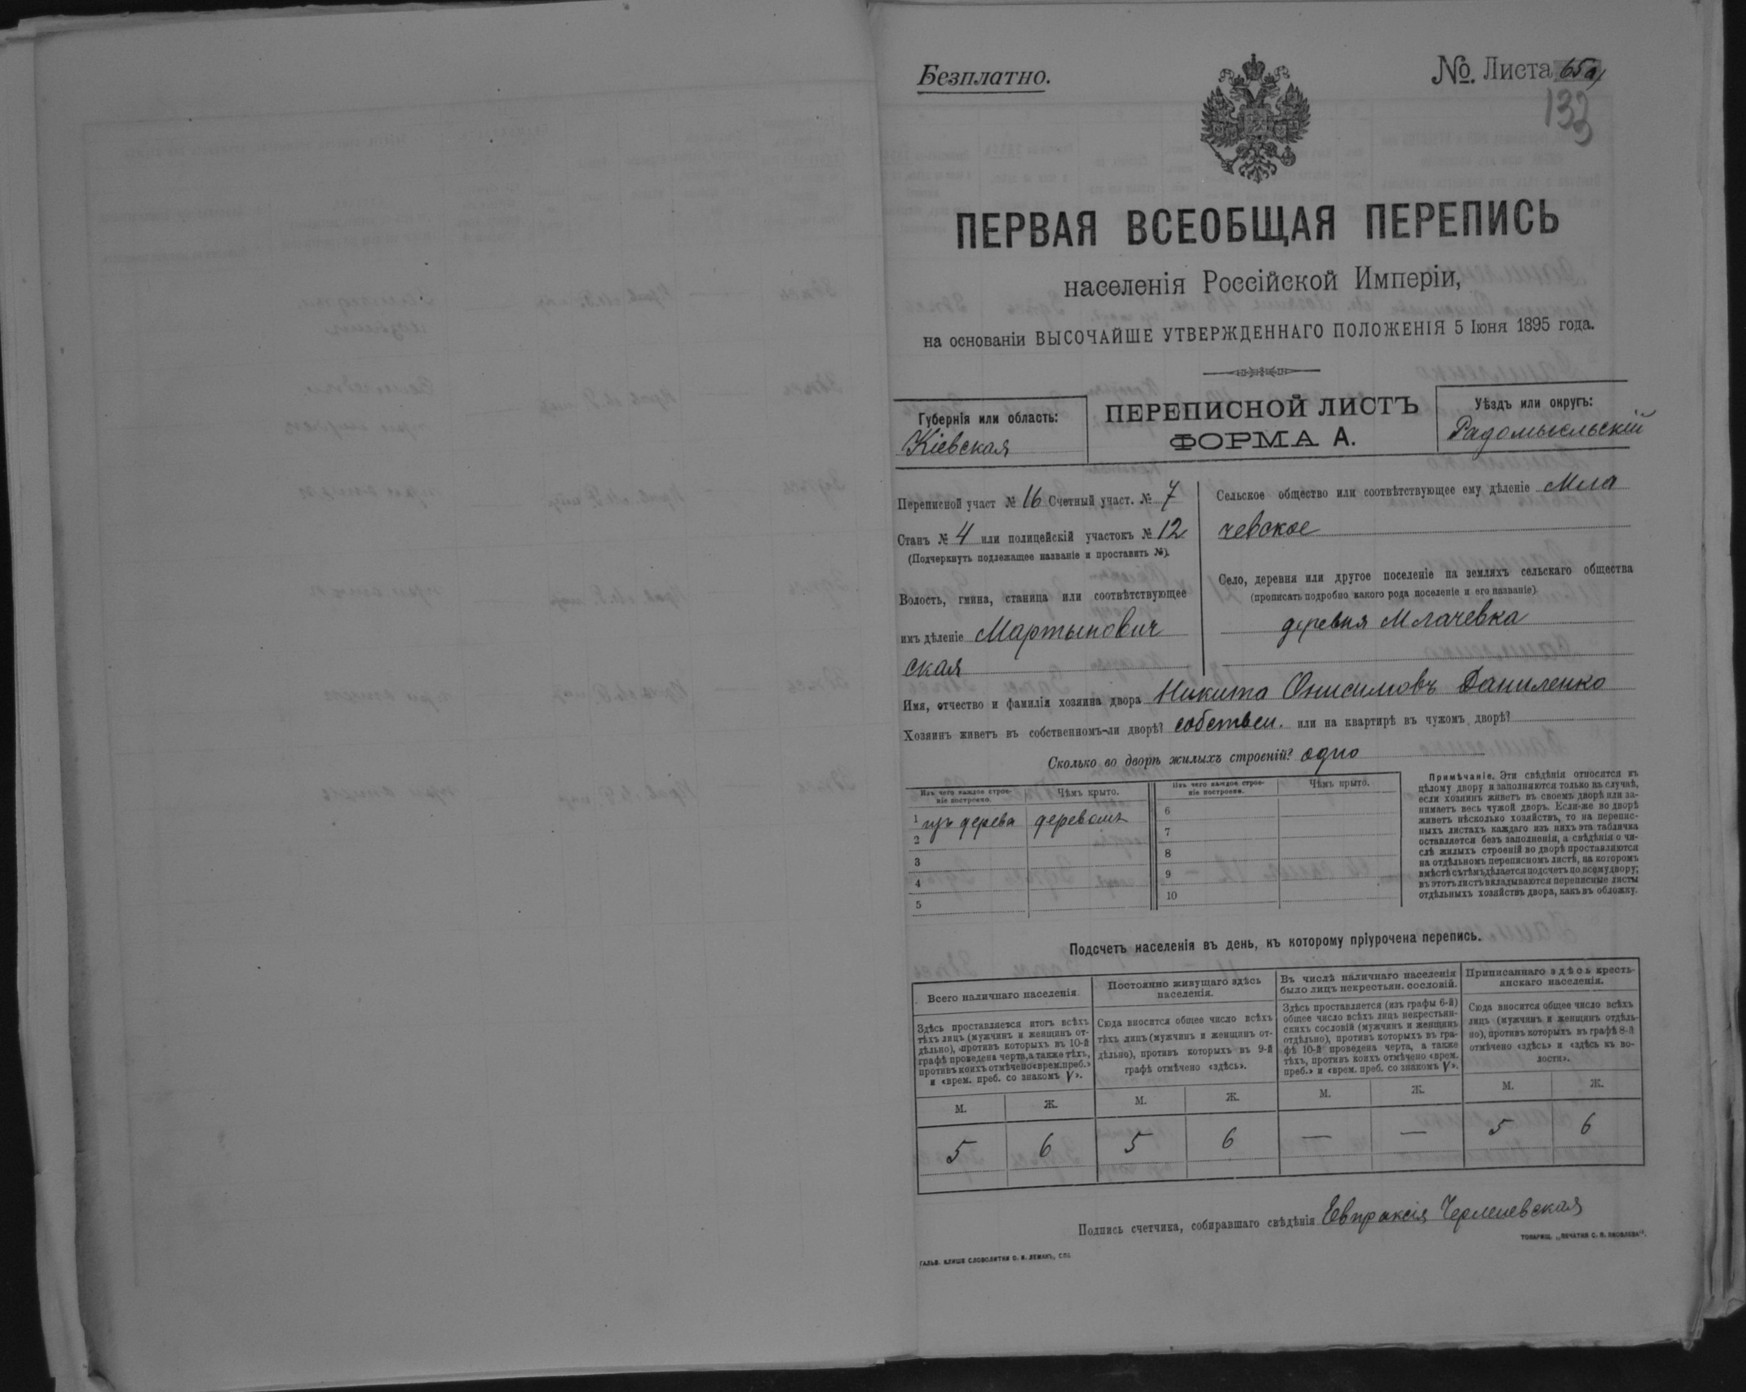 Безплатно.
№ Листа 65а
133
ПЕРВАЯ ВСЕОБЩАЯ ПЕРЕПИСЬ
населенія Россійской Имперіи,
на основаніи ВЫСОЧАЙШЕ УТВЕРЖДЕННАГО ПОЛОЖЕНІЯ 5 Іюня 1895 года.
Губернія или область:
Кіевская
ПЕРЕПИСНОЙ ЛИСТЪ
ФОРМА А.
Уѣздъ или округъ:
Радомысльскій
Переписной участ № 16 Счетный участ. № 7
Станъ № 4 или полицейскій участокъ № 12
(Подчеркнуть подлежащее названіе и проставить №).
Волость, гмина, станица или соотвѣтствующее
имъ дѣленіе Мартынович
ская
Сельское общество или соотвѣтствующее ему дѣленіе Мла
чевское
Село, деревня или другое поселеніе на земляхъ сельскаго общества
(прописать подробно какого рода поселеніе и его названіе)
деревня Млачевка
Имя, отчество и фамилія хозяина двора Никита Онисимовъ Даниленко
Хозяинъ живетъ въ собственномъ-ли дворѣ? собствен. или на квартирѣ въ чужомъ дворѣ?
Сколько во дворѣ жилыхъ строеній? одно
Изъ чего каждое строе-
ніе построено.
Чѣмъ крыто.
Изъ чего каждое строе-
ніе построено.
Чѣмъ крыто.
1 изъ дерева деревомъ
2
3
4
5
6
7
8
9
10
Примѣчаніе. Эти свѣдѣнія относятся къ
цѣлому двору и заполняются только въ случаѣ,
если хозяинъ живетъ въ своемъ дворѣ или за-
нимаетъ весь чужой дворъ. Если-же во дворѣ
живетъ нѣсколько хозяйствъ, то на перепис-
ныхъ листахъ каждаго изъ нихъ эта табличка
оставляется безъ заполненія, а свѣдѣнія о чи-
слѣ жилыхъ строеній во дворѣ проставляются
на отдѣльномъ переписномъ листѣ, на которомъ
вмѣстѣ съ тѣмъ дѣлается подсчетъ по всему двору;
въ этотъ листъ вкладываются переписные листы
отдѣльныхъ хозяйствъ двора, какъ въ обложку.
Подсчетъ населенія въ день, къ которому пріурочена перепись.
Всего наличнаго населенія
Здѣсь проставляется итогъ всѣхъ
тѣхъ лицъ (мужчинъ и женщинъ от-
дѣльно), противъ которыхъ въ 10-й
графѣ проведена черта, а также тѣхъ,
противъ коихъ отмѣчено «врем. преб.»
и «врем. преб. со знакомъ V».
Постоянно живущаго здѣсь
населенія.
Сюда вносится общее число всѣхъ
тѣхъ лицъ (мужчинъ и женщинъ от-
дѣльно), противъ которыхъ въ 9-й
графѣ отмѣчено «здѣсь».
Въ числѣ наличнаго населенія
было лицъ некрестьян. сословій.
Здѣсь проставляется (изъ графы 6-й)
общее число всѣхъ лицъ некрестьян-
скихъ сословій (мужчинъ и женщинъ
отдѣльно), противъ которыхъ въ гра-
фѣ 10-й проведена черта, а также
тѣхъ, противъ коихъ отмѣчено «врем.
преб.» и «врем. преб. со знакомъ V».
Приписаннаго здѣсь кресть-
янскаго населенія.
Сюда вносится общее число всѣхъ
лицъ (мужчинъ и женщинъ отдѣль-
но), противъ которыхъ въ графѣ 8-й
отмѣчено «здѣсь» и «здѣсь въ во-
лости».
М. Ж. М. Ж. М. Ж. М. Ж.
5 6 5 6 — — 5 6
Подпись счетчика, собиравшаго свѣдѣнія Евпраксія
ГАЛЬВ. КЛИШЕ СЛОВОЛИТНИ О. И. ЛЕМАНЪ, СПБ.
ТОВАРИЩ. „ПЕЧАТНЯ С. П. ЯКОВЛЕВА“.